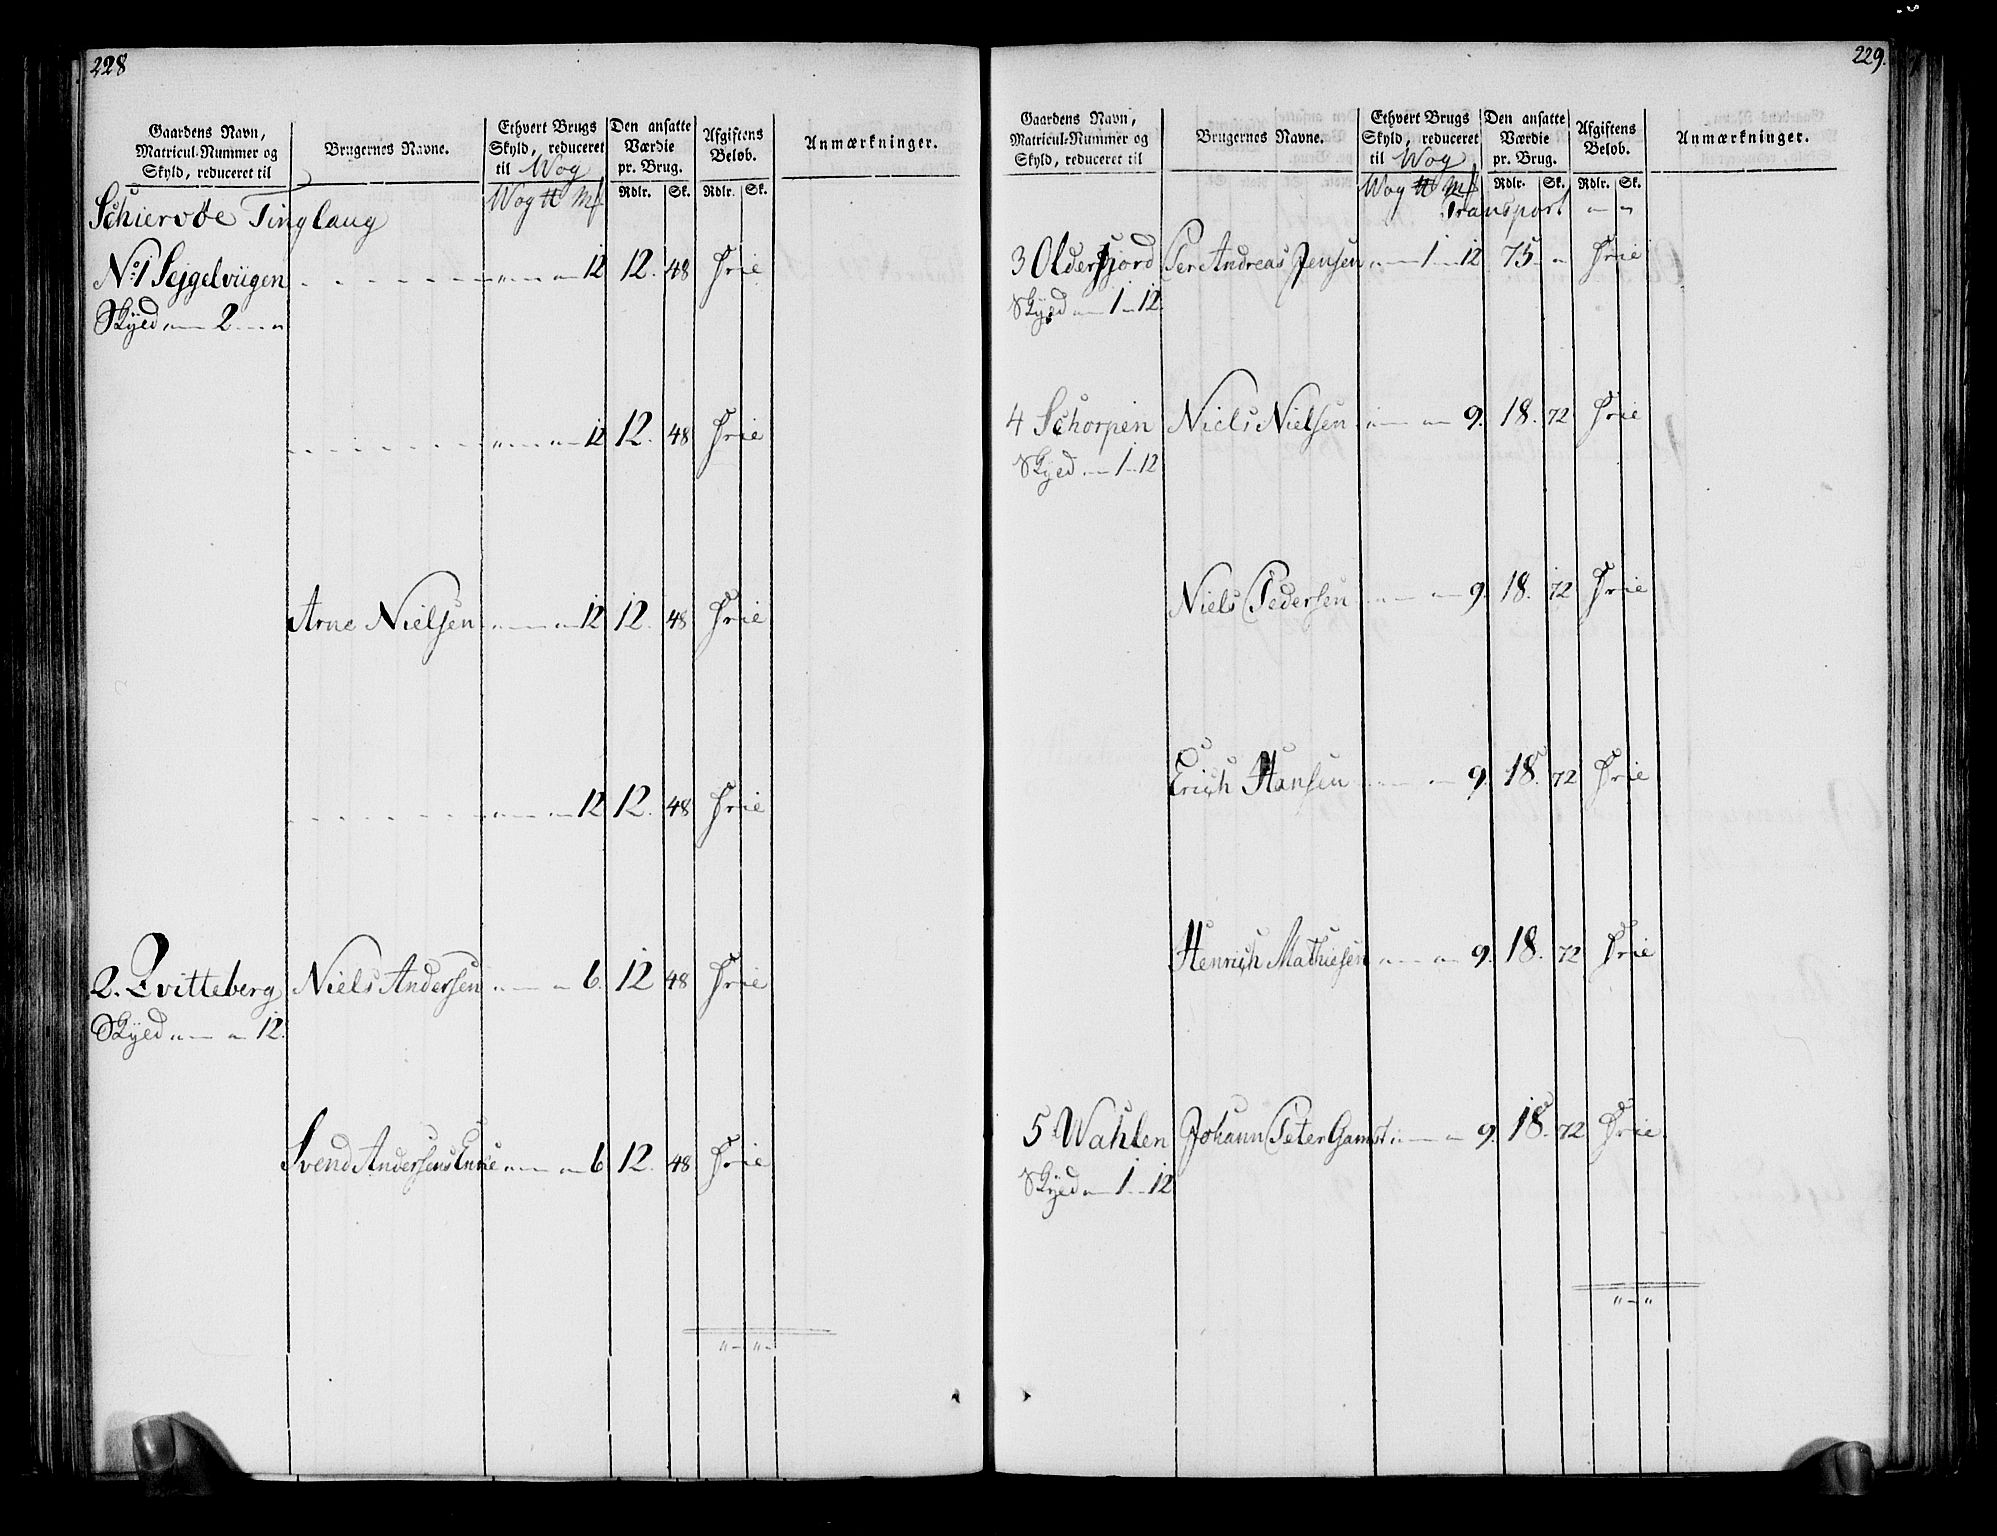 228
Gaardens Navn, Matricul-Nummer og Skyld, reduceret til | Brugernes Navne. | Ethvert Brugs Skyld, reduceret til Wog | Den ansatte Værdie pr. Brug. | Afgiftens Beløb. | Anmærkninger.
Wog ℔ Mk | Rdlr. Sk. | Rdlr. Sk.
Schiervöe Tinglaug
No. 1 Sejgelviigen . . . . . . " — " — 12 12. 48 Frie
Skyld " — 2 — "
. . . . . . " — " — 12 12. 48 Frie
Arne Nielsen " — " — 12 12. 48 Frie
. . . . . . " — " — 12 12. 48 Frie
2. Qvitteberg Niels Andersen " — " — 6. 12 48 Frie
Skyld " — " — 12.
Svend Andersens Enke " — " — 6 12. 48 Frie
" — " —
229.
Gaardens Navn, Matricul-Nummer og Skyld, reduceret til | Brugernes Navne. | Ethvert Brugs Skyld, reduceret til Wog | Den ansatte Værdie pr. Brug. | Afgiftens Beløb. | Anmærkninger.
Wog ℔ Mk | Rdlr. Sk. | Rdlr. Sk.
Transport " — "
3 Olderfjord Per Andreas Jensen " — 1 — 12. 75. " Frie
Skyld " — 1 — 12.
4 Schorpen Niels Nielsen " — " — 9. 18. 72 Frie
Skyld " — 1 — 12
Niels Pedersen " — " — 9. 18. 72 Frie
Erich Hansen " — " — 9. 18. 72 Frie
Henrich Mathiesen " — " — 9. 18. 72 Frie
5 Wahlen Johann Peter Gamst " — " — 9. 18. 72 Frie
Skyld " — 1 — 12
" — "